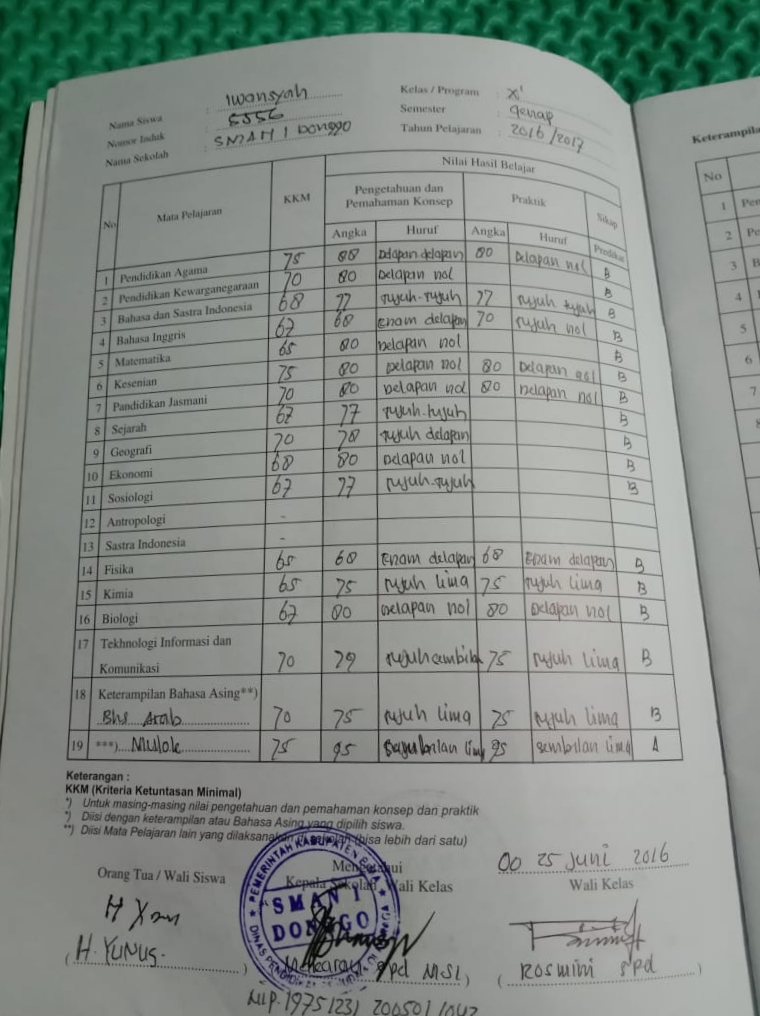 Nama Siswa : Iwansyah Kelas / Program : X'
Nomor Induk : 5556 Semester : genap
Nama Sekolah : SMAN 1 Donggo Tahun Pelajaran : 2016/2017
No Mata Pelajaran KKM Nilai Hasil Belajar
Pengetahuan dan Pemahaman Konsep Praktik Sikap
Angka Huruf Angka Huruf Predikat
1 Pendidikan Agama 75 88 Delapan delapan 80 Delapan nol B
2 Pendidikan Kewarganegaraan 70 80 Delapan nol B
3 Bahasa dan Sastra Indonesia 68 77 Tujuh-Tujuh 77 Tujuh Tujuh B
4 Bahasa Inggris 67 68 Enam delapan 70 Tujuh nol B
5 Matematika 65 80 Delapan nol B
6 Kesenian 75 80 Delapan nol 80 Delapan nol B
7 Pandidikan Jasmani 70 80 Delapan nol 80 Delapan nol B
8 Sejarah 67 77 Tujuh-Tujuh B
9 Geografi 70 78 Tujuh delapan B
10 Ekonomi 68 80 Delapan nol B
11 Sosiologi 67 77 Tujuh-Tujuh B
12 Antropologi -
13 Sastra Indonesia -
14 Fisika 65 68 Enam delapan 68 Enam delapan B
15 Kimia 65 75 Tujuh lima 75 Tujuh lima B
16 Biologi 67 80 Delapan nol 80 Delapan nol B
17 Tekhnologi Informasi dan
Komunikasi 70 79 Tujuh 75 Tujuh lima B
18 Keterampilan Bahasa Asing**)
Bhs Arab 70 75 Tujuh lima 75 Tujuh lima B
19 ***) Mulok 75 95 95 Sembilan lima A
Keterangan :
KKM (Kriteria Ketuntasan Minimal)
*) Untuk masing-masing nilai pengetahuan dan pemahaman konsep dan praktik
*) Diisi dengan keterampilan atau Bahasa Asing yang dipilih siswa.
**) Diisi Mata Pelajaran lain yang dilaksanakan di sekolah (bisa lebih dari satu)
OO 25 Juni 2016
Orang Tua / Wali Siswa Mengetahui Wali Kelas
Kepala Sekolah Wali Kelas
PEMERINTAH KABUPATEN BIMA
SMAN 1
DONGGO
(H. YUNUS.) Spd M.Si) (Rosmini Spd)
NIP. 19751231 200501 1042
Keterampila
No
1 Pen
2 Pe
3 B
4
5
6
7
8